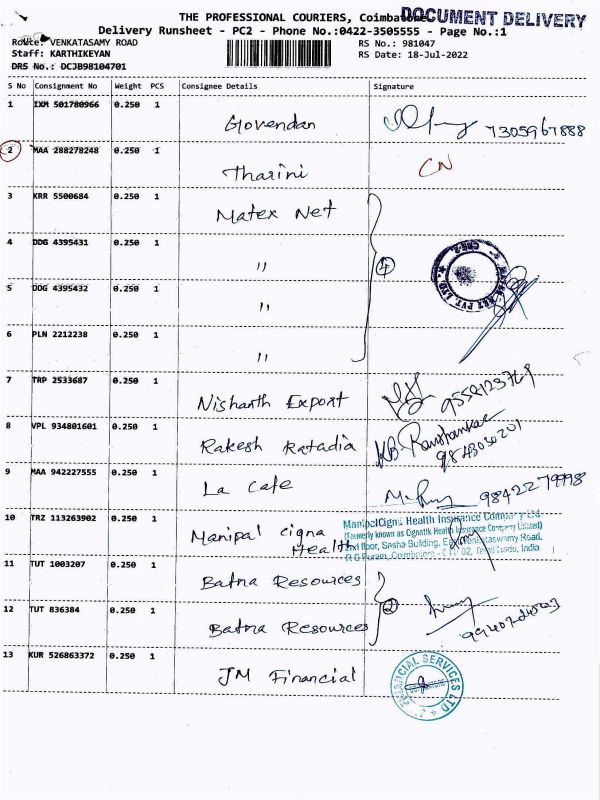 THE PROFESSIONAL COURIERS, Coimbatore
DOCUMENT DELIVERY
Delivery Runsheet - PC2 - Phone No.:0422-3505555 - Page No.:1
Route: VENKATASAMY ROAD RS No.: 981047
Staff: KARTHIKEYAN RS Date: 18-Jul-2022
DRS No.: DCJB98104701
S No Consignment No Weight PCS Consignee Details Signature
1 IXM 501780966 0.250 1 Govendan 7305967888
2 MAA 288278248 0.250 1 Tharini CN
3 KRR 5500684 0.250 1 Matex Net
4 DDG 4395431 0.250 1 " 4
5 DDG 4395432 0.250 1 "
6 PLN 2212238 0.250 1 "
7 TRP 2533687 0.250 1 Nishanth Export
8 VPL 934801601 0.250 1 Rakesh Ratadia 9843030201
9 MAA 942227555 0.250 1 La Cafe 9842279998
10 TRZ 113263902 0.250 1 Manipal Cigna Health
ManipalCigna Health Insurance Company Ltd
(Formerly known as Cignattk Health Insurance Company Limited)
floor, Sesha Building, Venkataswamy Road,
R G Puram, Coimbatore - 02, Tamil Nadu, India
11 TUT 1003207 0.250 1 Batna Resources
12 TUT 836384 0.250 1 Batna Resources 2
13 KUR 526863372 0.250 1 JM Financial
FINANCIAL SERVICES LTD